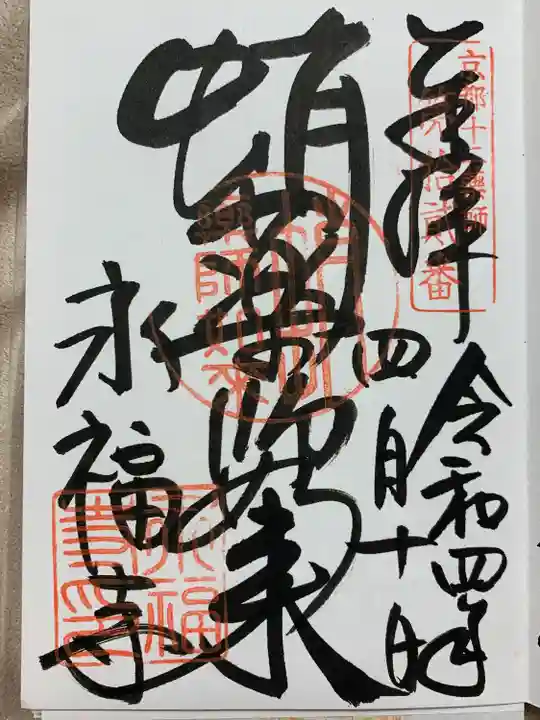 奉拝
令和四年
四月十日
蛸薬師如来
永福寺
京都十二薬師
第拾貳番
蛸薬師如来
永福寺印